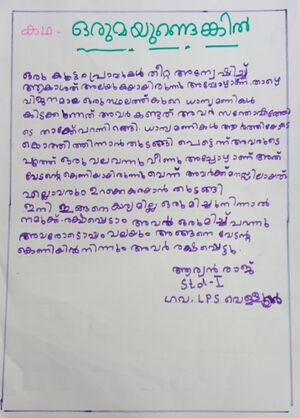 കഥ - ഒരുമയുണ്ടെങ്കിൽ
ഒരു കൂട്ടം പ്രാവുകൾ തീറ്റ അന്വേഷിച്ച്
ആകാശത്ത് അലയുകയായിരുന്നു അപ്പോഴാണ് താഴെ
വിജനമായ ഒരു സ്ഥലത്ത് കുറെ ധാന്യമണികൾ
കിടക്കുന്നത് അവർ കണ്ടത് അവർ സന്തോഷിത്തോ
ടെ താഴേവന്നിരങ്ങി. ധാന്യമണികൾ ആർത്തിയോടെ
കൊത്തിത്തിന്നാൻ തുടങ്ങി പെട്ടെന്ന് അവരുടെ
പുറത്ത് ഒരു വലവന്നു വീണു അപ്പോഴാണ് അത്
വേടന്റെ കെണിയായിരുന്നു വെന്ന് അവർക്ക് മനസ്സിലായത്
എല്ലാവരും ഉറക്കെ കരയാൻ തുടങ്ങി
ഇനി ഇങ്ങനെ കാര്യമില്ല ഒരുമിച്ചുനിന്നാൽ
നമുക്ക് രക്ഷപ്പെടാം അവർ ഒരുമിച്ച് പറന്നു
അവരോടൊപ്പം വലയും അങ്ങനെ വേടന്റെ
കെണിയിൽനിന്നും അവർ രക്ഷപ്പെട്ടു.
ആര്യൻ രാജ്
Std-I
ഗവ. LPS വെള്ളൂർ